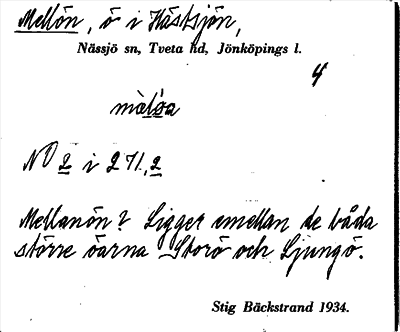 Mellön, ö i Hästsjön,
Nässjö sn, Tveta hd, Jönköpings l.
4
NO 2 i 271,2
Mellanön? Ligger emellan de båda
större öarna Storö och Ljungö.
Stig Bäckstrand 1934.